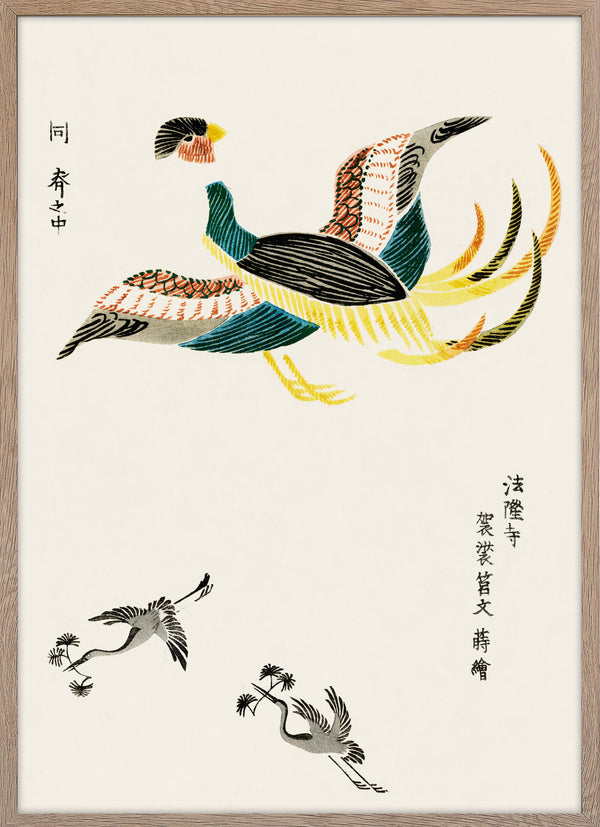 法隆寺
袈裟筥文 蒔繪
同 之中